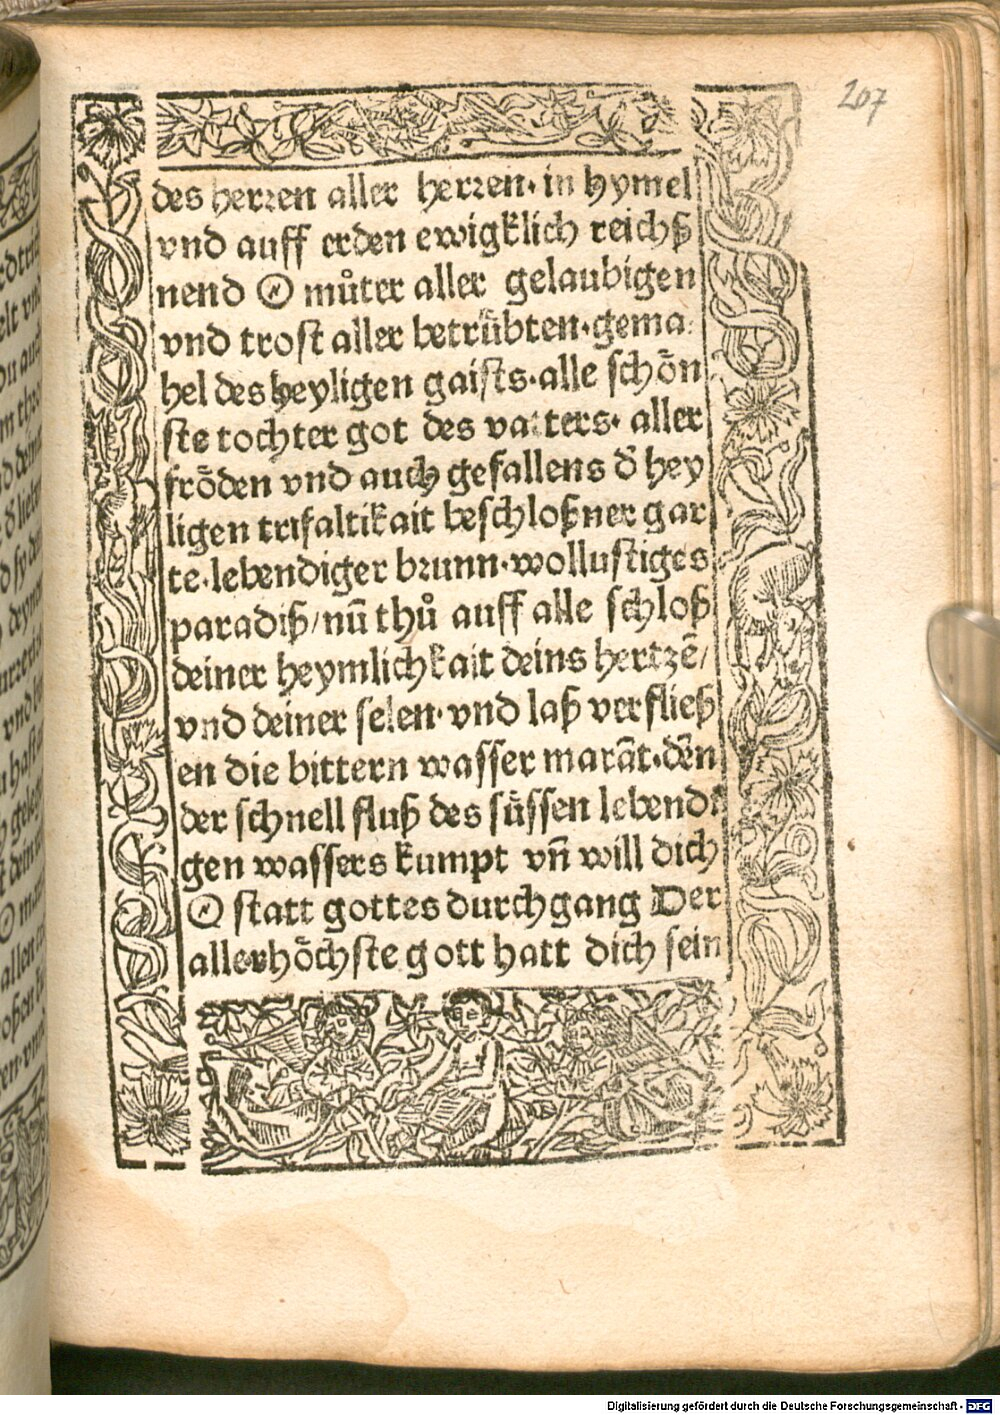 207
des herren aller herren· in hymel
vnd auff erden ewigklich reichß
nend O můter aller gelaubigen
vnd trost aller betrůbten·gema⸗
hel des heyligen gaists·alle schõn
ste tochter got des vatters· aller
frõden vnd auch gefallens d̕ hey
ligen trifaltikait beschloßner gar
te·lebendiger brunn·wollustiges
paradiß/nũ thů auff alle schloß
deiner heymlichkait deins hertzẽ/
vnd deiner selen· vnd laß verfließ
en die bittern wasser marãt·dẽn
der schnell fluß des sůssen lebendi
gen wassers kumpt vñ will dich
O statt gottes durchgang Der
allerhõchste gott hatt dich sein
Digitalisierung gefördert durch die Deutsche Forschungsgemeinschaft - DFG